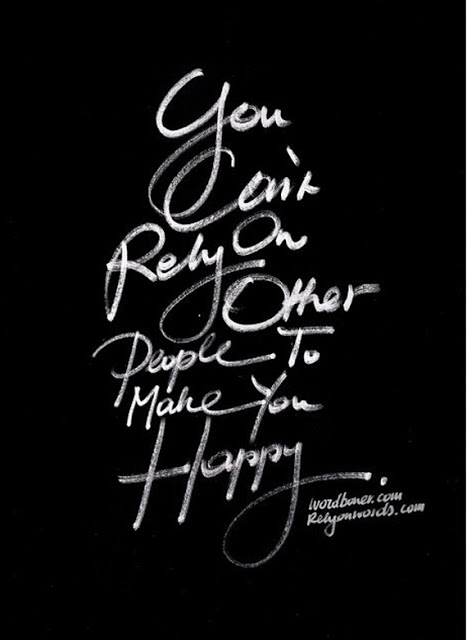 You
Can't
Rely On
Other
People To
Make You
Happy.
wordboner.com
Relyonwords.com